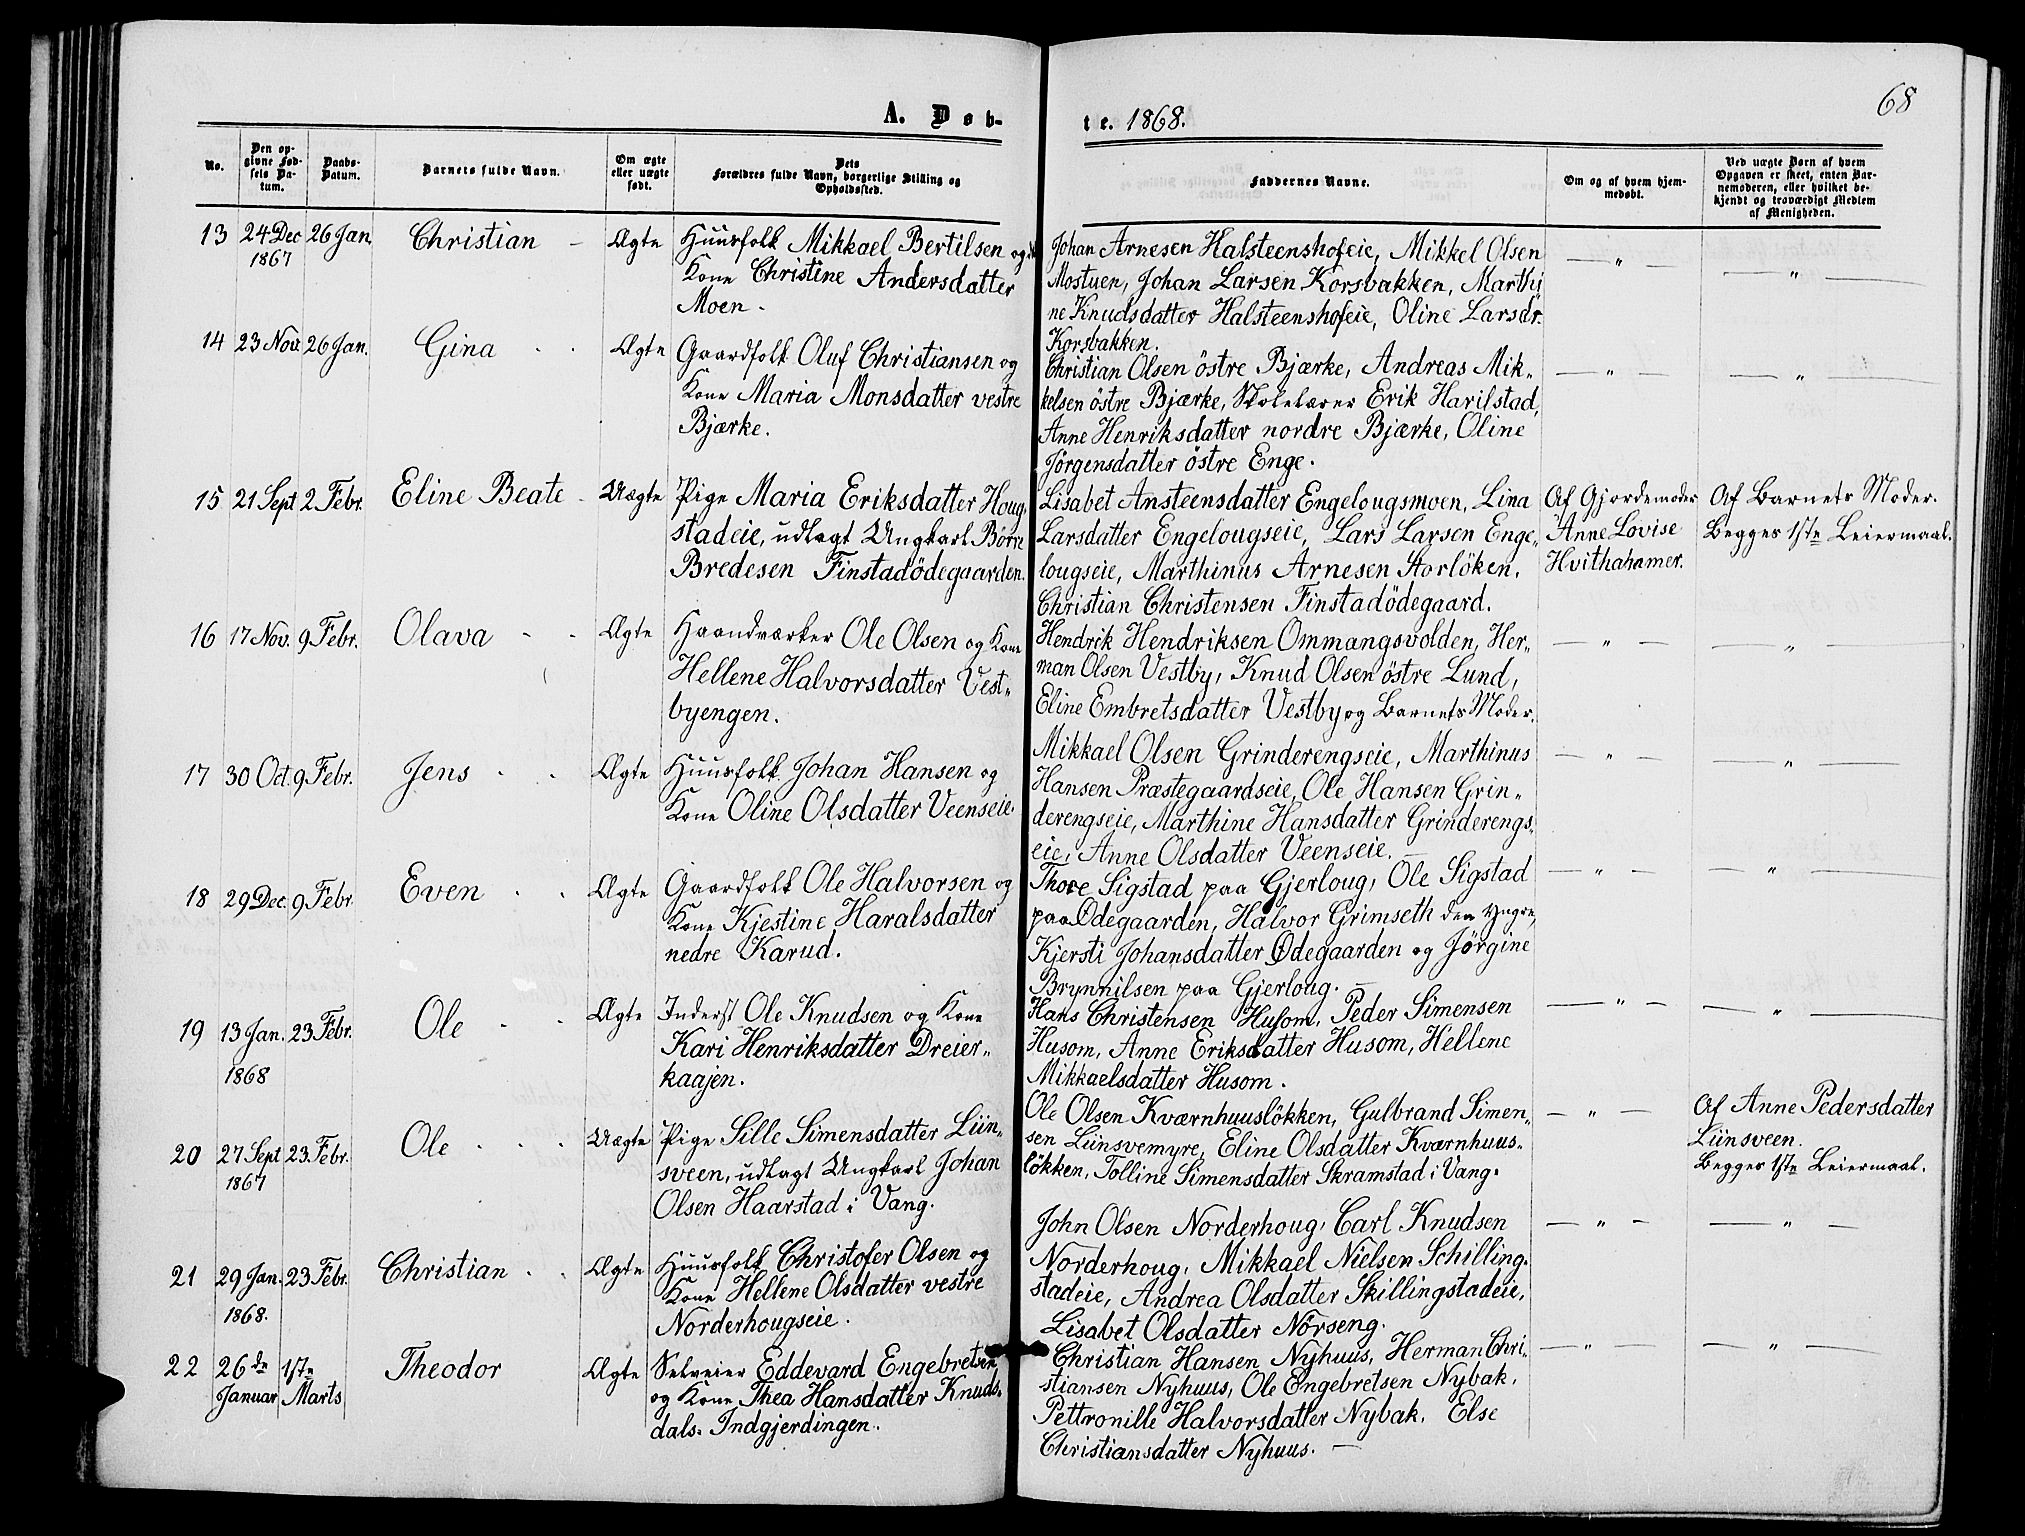 68
A. Døb-
te. 1868.
No.
Den op-
givne Fød-
sels Da-
tum.
Daabs-
Datum.
Barnets fulde Navn.
Om ægte
eller uægte
født.
Dets
Forældres fulde Navn, borgerlige Stilling og
Opholdssted.
Faddernes Navne.
Om og af hvem hjem-
medøbt.
Ved uægte Børn af hvem
Opgaven er skeet, enten Bar-
nemoderen, eller hvilket be-
kjendt og troværdigt Medlem
af Menigheden.
13 24 Dec 26 Jan. Christian - Ægte
1867
Huusfolk Mikkael Bertilsen og
Kone Christine Andersdatter
Moen.
Johan Arnesen Halsteenshofeie, Mikkel Olsen
Mostuen, Johan Larsen Korsbakken, Marthi
ne Knudsdatter Halsteenshofeie, Oline Larsdr.
Korsbakken.
— " —
— " —
14 23 Nov. 26 Jan. Gina - - Ægte
Gaardfolk Oluf Christiansen og
Kone Maria Monsdatter vestre
Bjærke.
Christian Olsen östre Bjærke, Andreas Mik„
kelsen östre Bjærke, Skolelærer Erik Harilstad,
Anne Henriksdatter nordre Bjærke, Oline
Jörgensdatter östre Enge.
— " —
— " —
15 21 Sept 2 Febr. Eline Beate - Uægte
Pige Maria Eriksdatter Houg„
stadeie, udlagt Ungkarl Börre
Bredesen Finstadödegaarden.
Lisabet Ansteensdatter Engelougsmoen, Lina
Larsdatter Engelougseie, Lars Larsen Enge„
lougseie, Marthinus Arnesen Storlöken,
Christian Christensen Finstadödegaard.
Af Gjordemoder
Anne Lovise
Hvithahamer.
Af Barnets Moder.
Begges 1ste Leiermaal.
16 17 Nov. 9 Febr. Olava - - Ægte
Haandværker Ole Olsen og Kone
Hellene Halvorsdatter Vest„
byengen.
Hendrik Hendriksen Ommangsvolden, Her„
man Olsen Vestby, Knud Olsen östre Lund,
Eline Embretsdatter Vestby og Barnets Moder.
— " —
— " —
17 30 Oct. 9 Febr. Jens - - Ægte
Huusfolk Johan Hansen og
Kone Oline Olsdatter Veenseie.
Mikkael Olsen Grinderengseie, Marthinus
Hansen Præstegaardseie, Ole Hansen Grin„
derengseie, Marthine Hansdatter Grinderengs„
eie, Anne Olsdatter Veenseie. —
— " —
— " —
18 29 Dec. 9 Febr. Even - - Ægte
Gaardfolk Ole Halvorsen og
Kone Kjestine Haralsdatter
nedre Karud.
Thore Sigstad paa Gjerloug, Ole Sigstad
paa Ødegaarden, Halvor Grimseth den yngre,
Kjersti Johansdatter Ødegaarden og Jörgine
Brynnilsen paa Gjerloug. —
— " —
— " —
19 13 Jan. 23 Febr. Ole - - Ægte
1868
Inderst Ole Knudsen og Kone
Kari Henriksdatter Dreier„
kaajen.
Hans Christensen Husom, Peder Simensen
Husom, Anne Eriksdatter Husom, Hellene
Mikkaelsdatter Husom.
— " —
— " —
20 27 Sept 23 Febr. Ole - - - Uægte
1867
Pige Sille Simensdatter Liin„
sveen, udlagt Ungkarl Johan
Olsen Haarstad i Vang.
Ole Olsen Kværnhuuslökken, Gulbrand Simen„
sen Liinsvemyre, Eline Olsdatter Kværnhuus„
lökken, Tolline Simensdatter Skramstad i Vang.
— " —
Af Anne Pedersdatter
Liinsveen.
Begges 1ste Leiermaal.
21 29 Jan. 23 Febr. Christian - - Ægte
1868.
Huusfolk Christofer Olsen og
Kone Hellene Olsdatter vestre
Norderhougseie.
John Olsen Norderhoug, Carl Knudsen
Norderhoug, Mikkael Nielsen Schilling„
stadeie, Andrea Olsdatter Skillingstadeie,
Lisabet Olsdatter Nörseng.
— " —
— " —
22 26de 1ste Theodor Ægte
Januar Marts
Selveier Eddevard Engebretsen
og Kone Thea Hansdatter Knuds„
dals. Indgjerdingen.
Christian Hansen Nyhuus, Herman Chri„
stiansen Nyhuus, Ole Engebretsen Nybak,
Pettronille Halvorsdatter Nybak, Else
Christiansdatter Nyhuus. —
— " —
— " —